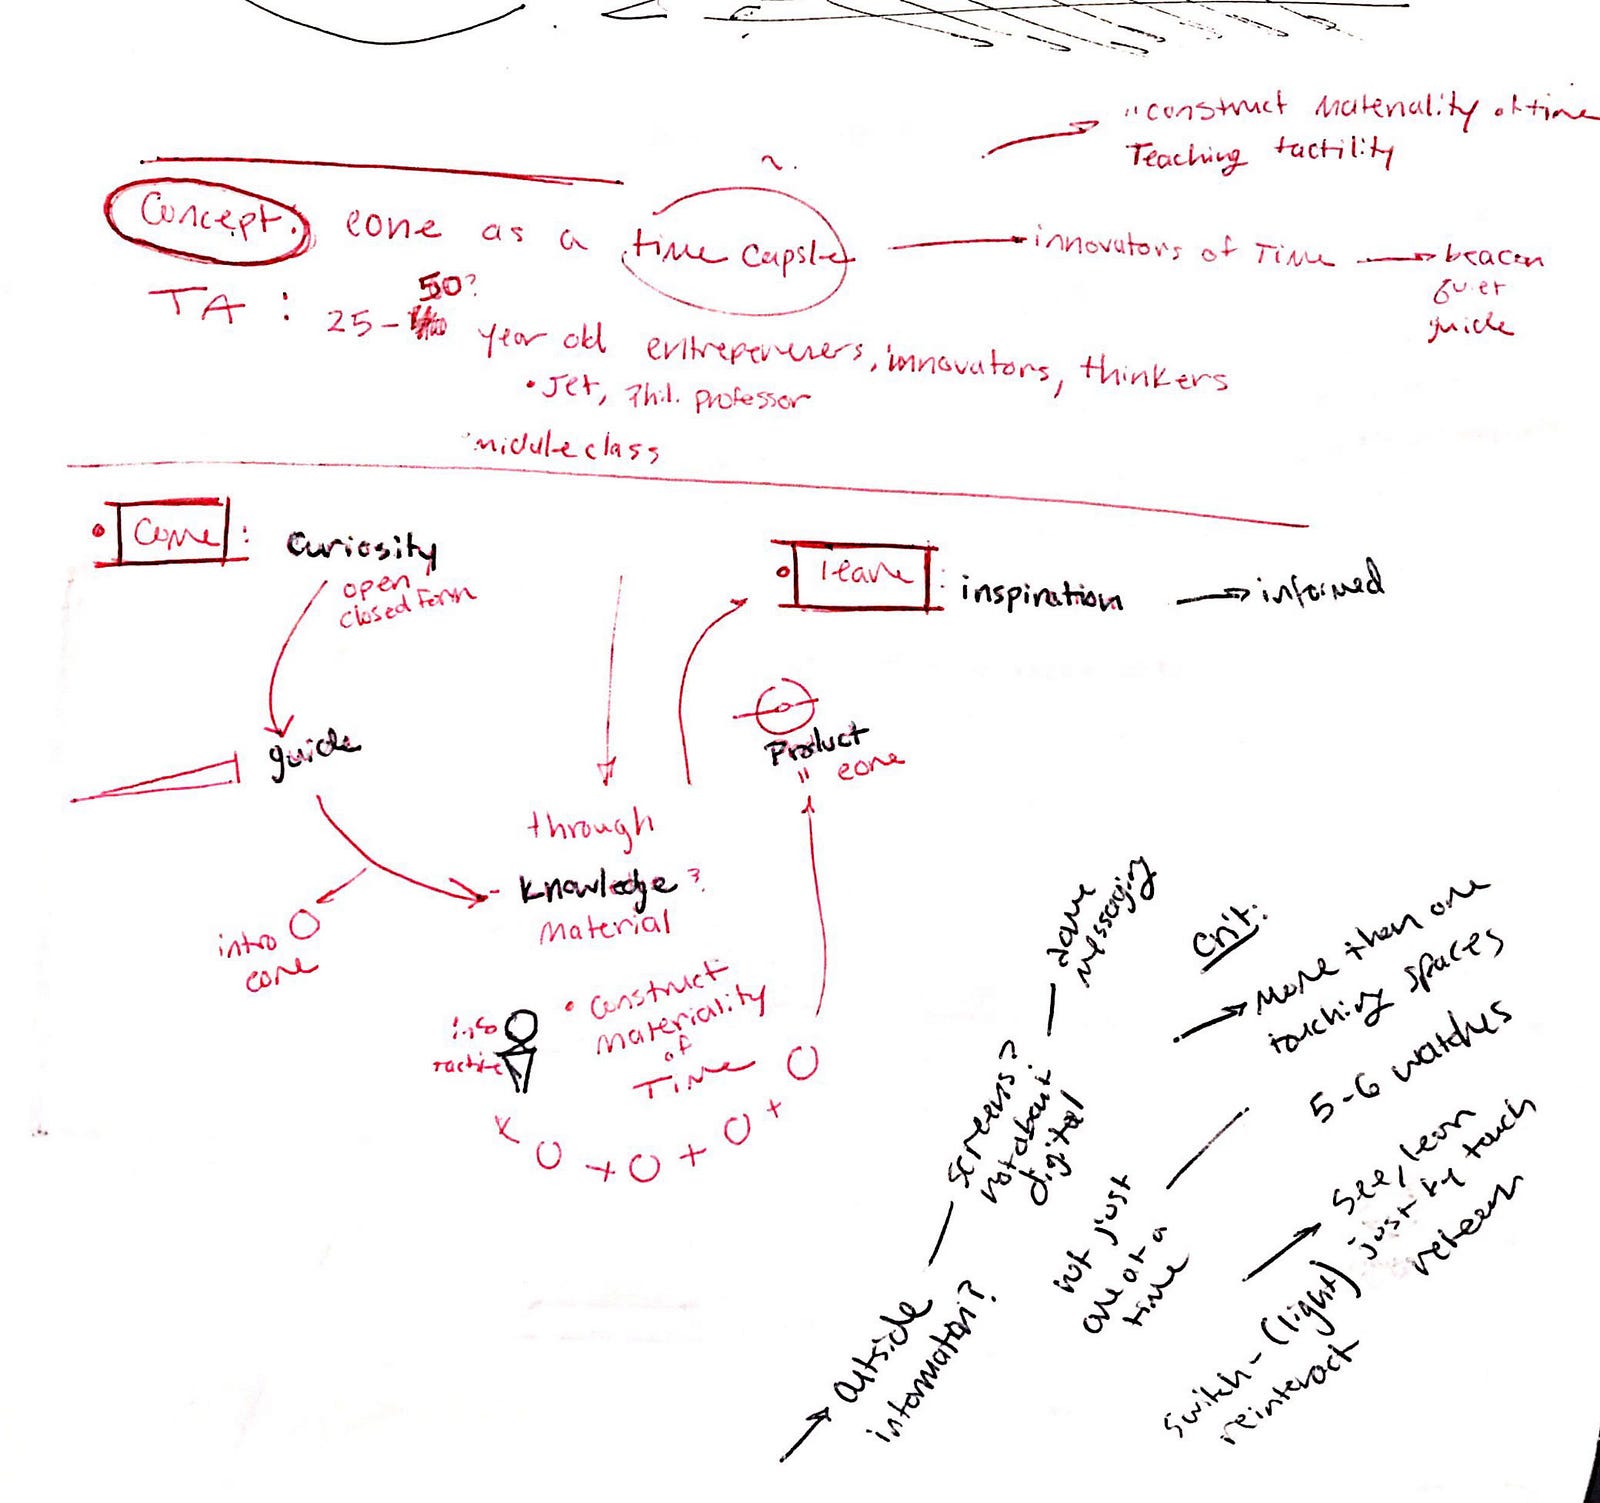 "construct materiality of time
Teaching tactility
Concept: eone as a time capsle
innovators of Time
beacon
guide
TA: 25- 50? year old entrepeneuers, innovators, thinkers
• Jet, Phil. professor
middle class
• Come:
curiosity
open
closed form
• leave:
inspiration
informed
guide
Product
" eone
through
knowledge?
material
intro
eone
• construct
materiality
of
Time
tactile
Crit:
More than one
touching spaces
5-6 watches
not just
one at a
time
see/learn
just by touch
switch - (light)
reinteract
outside
information?
screens?
not about
digital
messaging